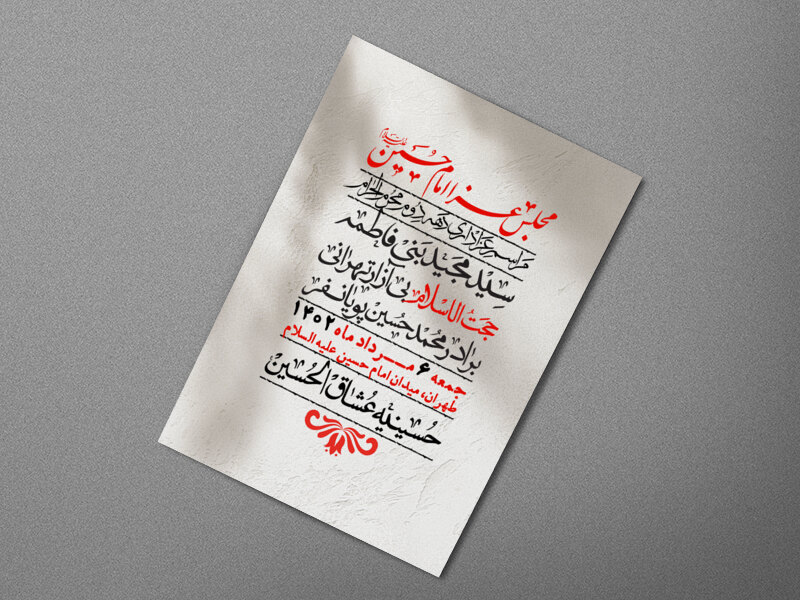 مجلس عزا امام حسین علیه السلام
مراسم عزاداری دهه دوم محرم الحرام
سید مجید بنی فاطمه
حجت الاسلام بی آزار تهرانی
برادر محمد حسین پویانفر
جمعه ۶ مرداد ماه ۱۴۰۲
طهران، میدان امام حسین علیه السلام
حسینیه عشاق الحسین